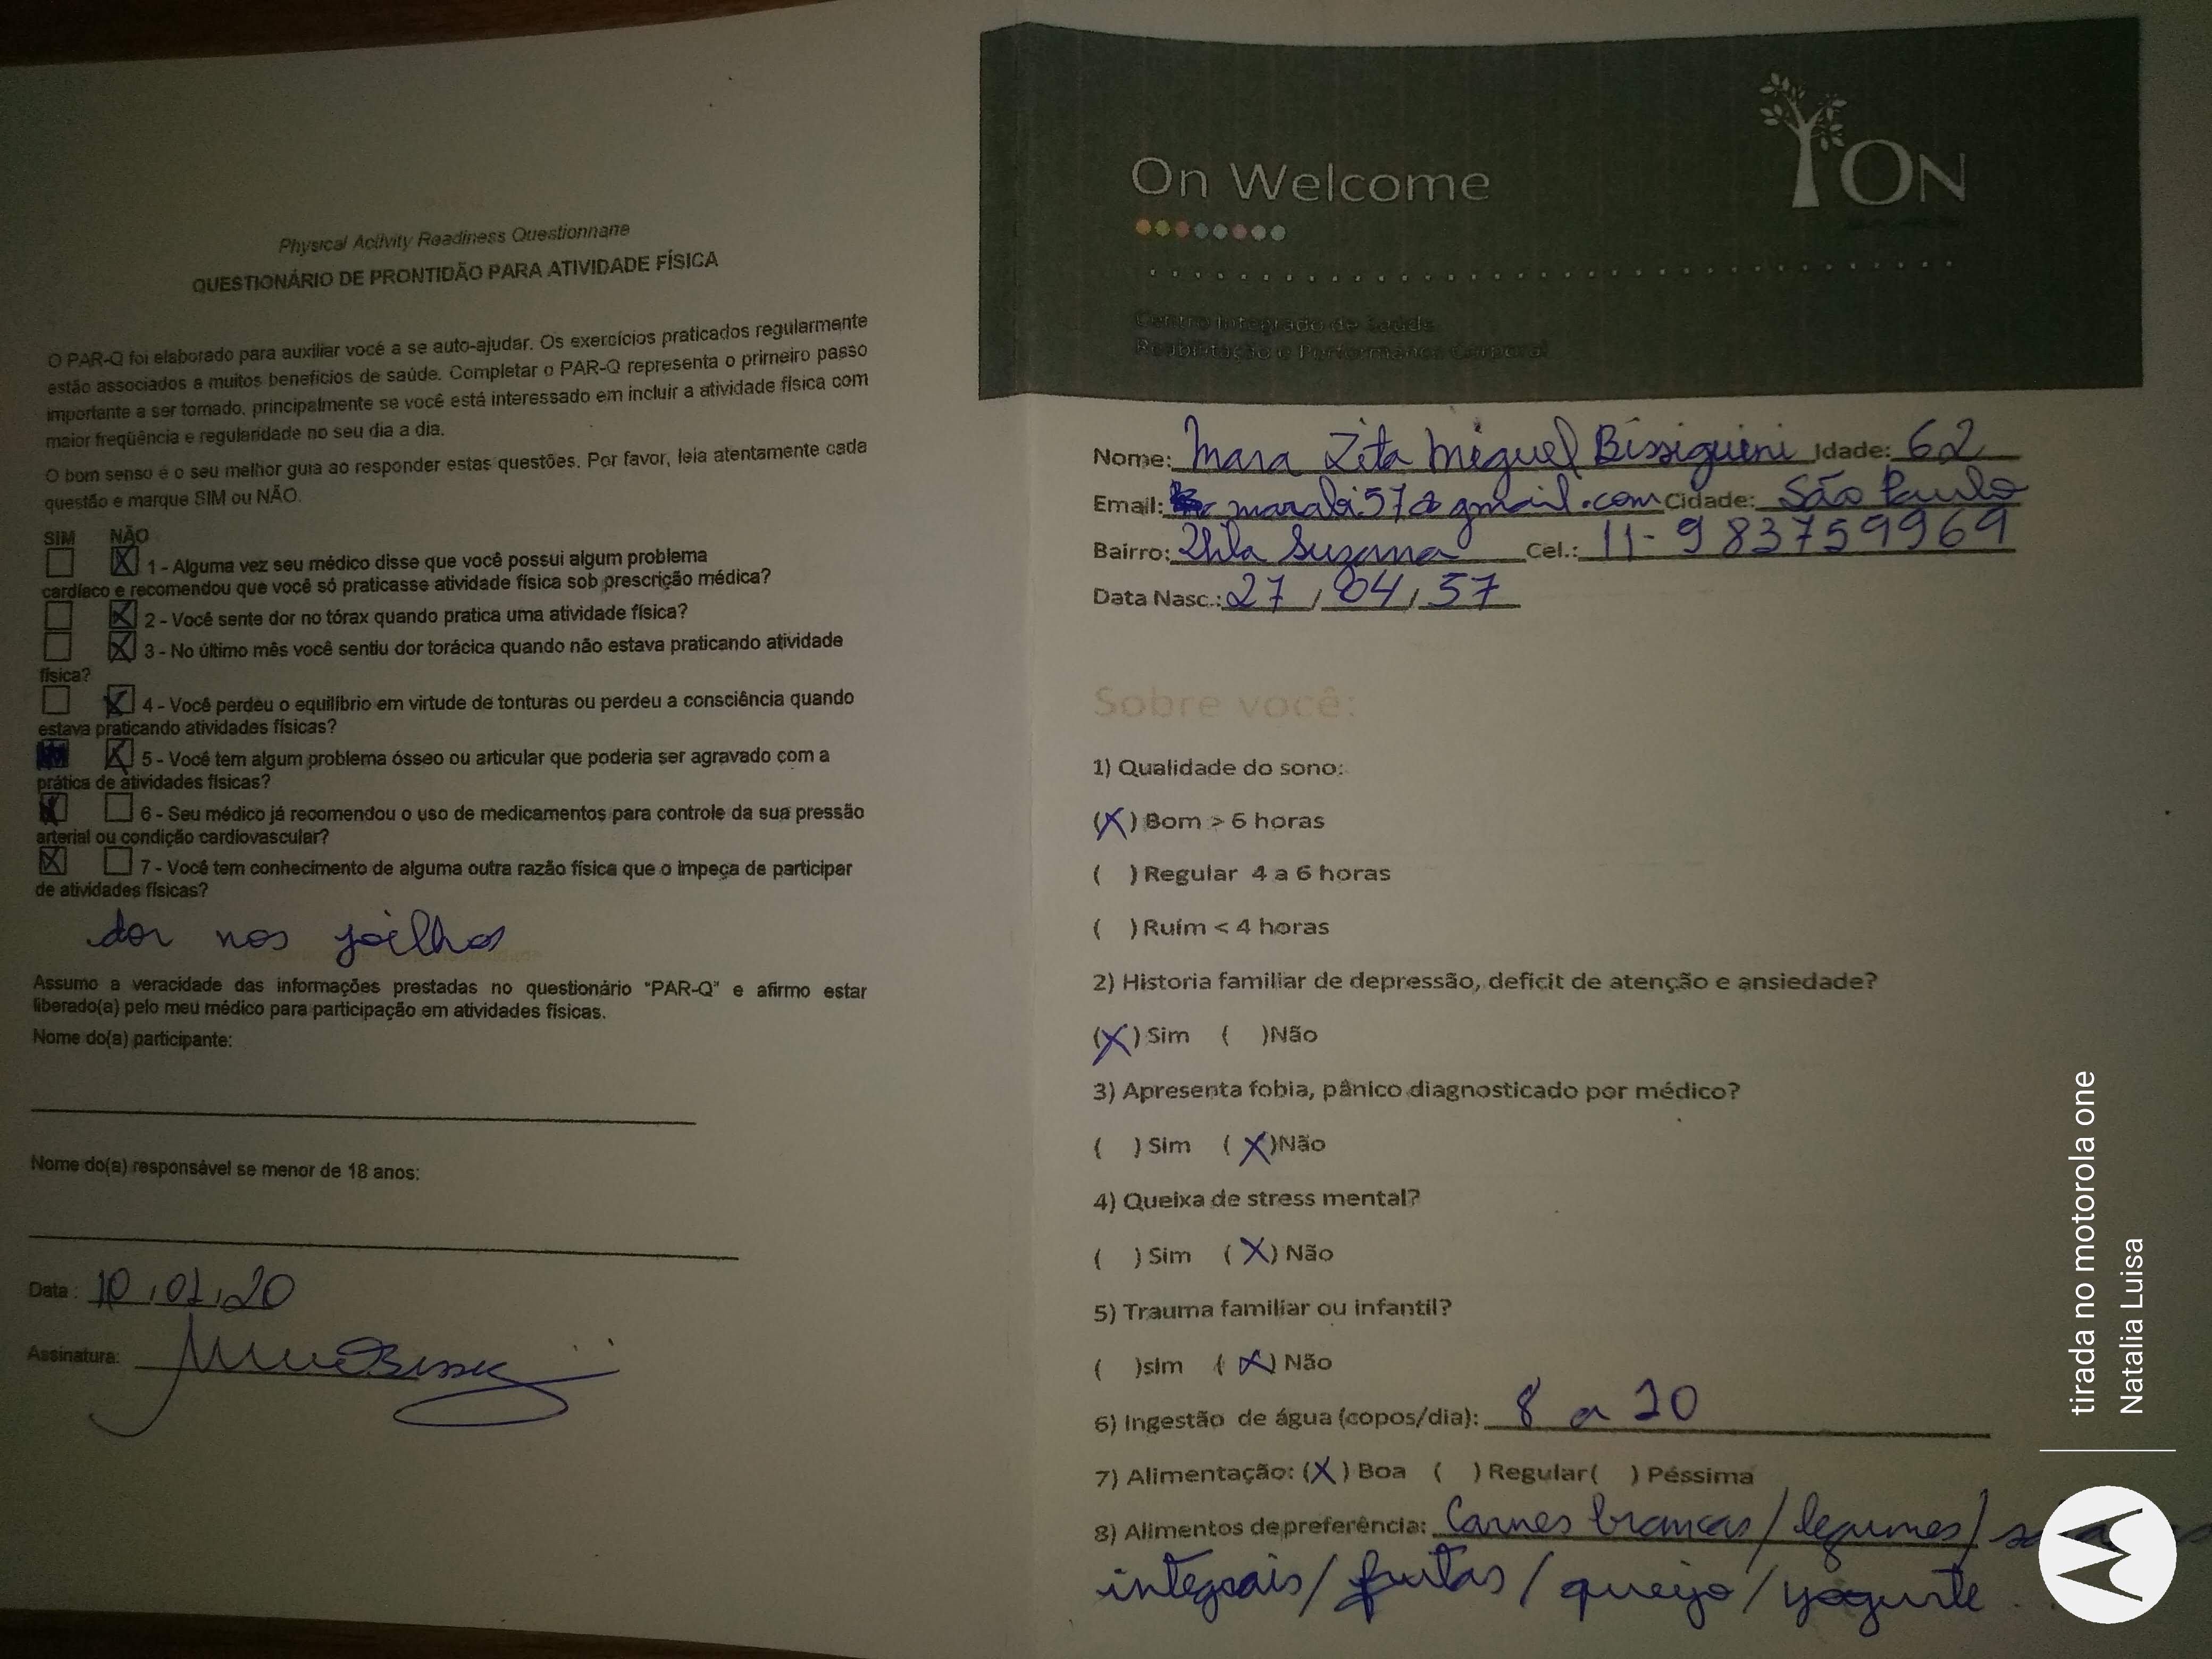 Physical Activity Readiness Questionnaire
QUESTIONÁRIO DE PRONTIDÃO PARA ATIVIDADE FÍSICA
O PAR-Q foi elaborado para auxiliar você a se auto-ajudar. Os exercícios praticados regularmente
estão associados a muitos benefícios de saúde. Completar o PAR-Q representa o primeiro passo
importante a ser tomado, principalmente se você está interessado em incluir a atividade física com
maior freqüência e regularidade no seu dia a dia.
O bom senso é o seu melhor guia ao responder estas questões. Por favor, leia atentamente cada
questão e marque SIM ou NÃO.
SIM NÃO
☐ ☒ 1 - Alguma vez seu médico disse que você possui algum problema
cardíaco e recomendou que você só praticasse atividade física sob prescrição médica?
☐ ☒ 2 - Você sente dor no tórax quando pratica uma atividade física?
☐ ☒ 3 - No último mês você sentiu dor torácica quando não estava praticando atividade
física?
☐ ☒ 4 - Você perdeu o equilíbrio em virtude de tonturas ou perdeu a consciência quando
estava praticando atividades físicas?
☒ 5 - Você tem algum problema ósseo ou articular que poderia ser agravado com a
prática de atividades físicas?
☒ ☐ 6 - Seu médico já recomendou o uso de medicamentos para controle da sua pressão
arterial ou condição cardiovascular?
☒ ☐ 7 - Você tem conhecimento de alguma outra razão física que o impeça de participar
de atividades físicas?
dor nos joelhos
Assumo a veracidade das informações prestadas no questionário "PAR-Q" e afirmo estar
liberado(a) pelo meu médico para participação em atividades físicas.
Nome do(a) participante:
Nome do(a) responsável se menor de 18 anos:
Data: 10.02.20
Assinatura:
On Welcome
ON
Centro Integrado de Saúde
Reabilitação e Performance Corporal
Nome: Mara Zita Miguel Bissiguini Idade: 62
Email: marabi57@gmail.com Cidade: São Paulo
Bairro: Vila Suzana Cel.: 11-983759969
Data Nasc.: 27/04/57
Sobre você:
1) Qualidade do sono:
(X) Bom > 6 horas
( ) Regular 4 a 6 horas
( ) Ruím < 4 horas
2) Historia familiar de depressão, deficit de atenção e ansiedade?
(X) Sim ( )Não
3) Apresenta fobia, pânico diagnosticado por médico?
( ) Sim (X)Não
4) Queixa de stress mental?
( ) Sim (X) Não
5) Trauma familiar ou infantil?
( )sim (X) Não
6) Ingestão de água (copos/dia): 8 a 10
7) Alimentação: (X) Boa ( ) Regular( ) Péssima
8) Alimentos de preferência: Carnes brancas / legumes /
integrais / frutas / queijo / yogurte
tirada no motorola one
Natalia Luisa